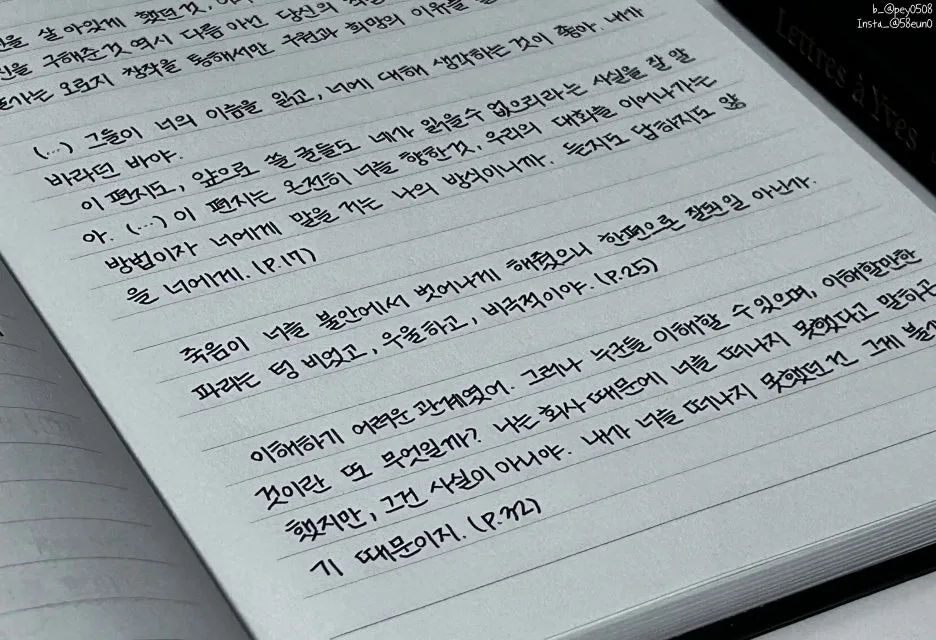 b_@pey0508
Insta_@58eun0
Lettres à Yves
살아있게 했던 것,
구해준 것 역시 다름 아닌 당신의
오로지 창작을 통해서만 구원과 희망의 이유를
(...) 그들이 너의 이름을 읽고, 너에 대해 생각하는 것이 좋아. 내가
바라던 바야.
이 편지도, 앞으로 쓸 글들도 네가 읽을 수 없으리라는 사실을 잘 알
아. (...) 이 편지는 온전히 너를 향한 것, 우리의 대화를 이어나가는
방법이자 너에게 말을 거는 나의 방식이니까. 듣지도 답하지도 않
을 너에게. (P.17)
죽음이 너를 불안에서 벗어나게 해줬으니 한편으론 잘된 일 아닌가.
파리는 텅 비었고, 우울하고, 비극적이야. (P.25)
이해하기 어려운 관계였어. 그러나 누군들 이해할 수 있으며, 이해할만한
것이란 또 무엇일까? 나는 회사 때문에 너를 떠나지 못했다고 말하곤
했지만, 그건 사실이 아니야. 내가 너를 떠나지 못했던 건 그게
기 때문이지.